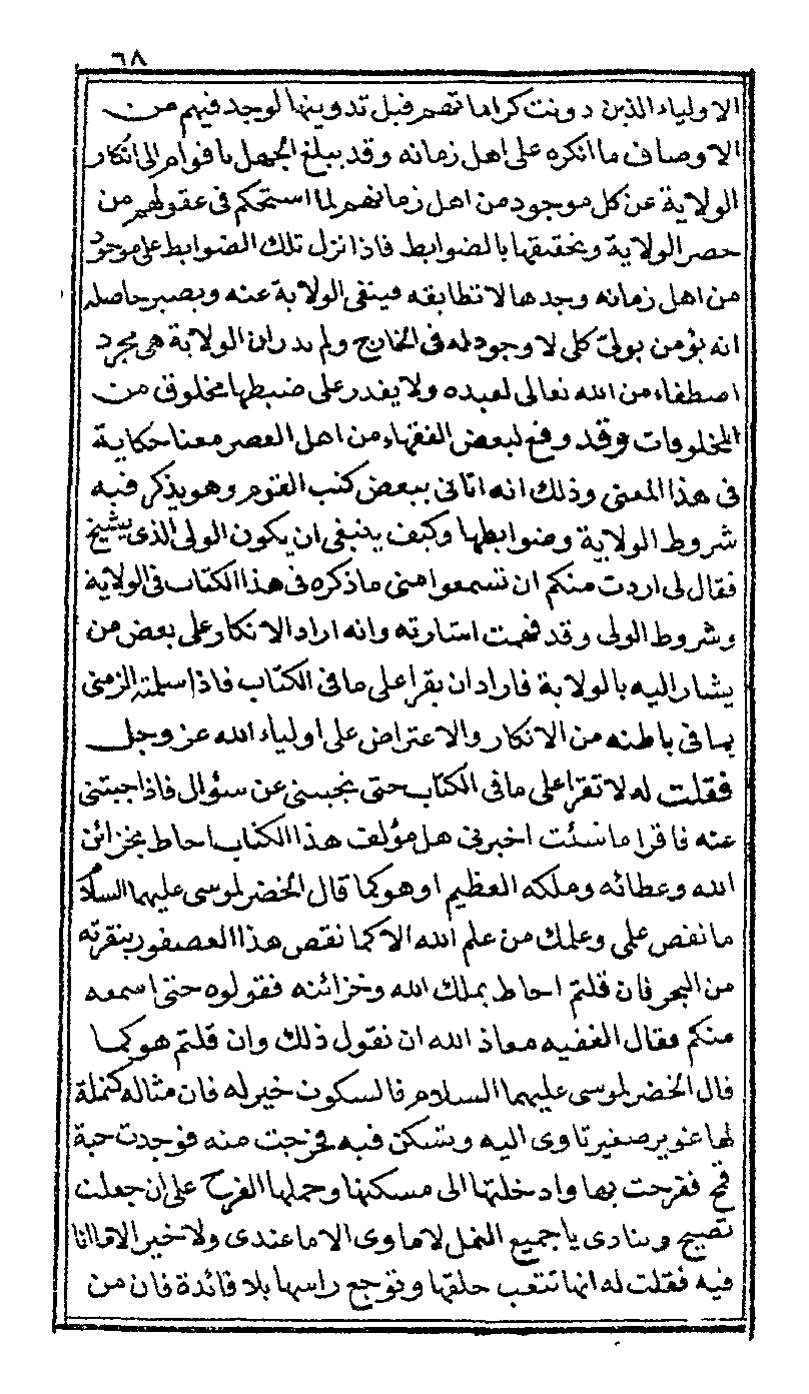 ٦٨
الاولياء الذين دونت كراماتهم قبل تدوينها لوجد فيهم من
الاوصاف ما انكره على اهل زمانه وقد يبلغ الجهل باقوام الى انكار
الولاية عن كل موجود من اهل زمانهم لما استحكم فى عقولهم من
حصر الولاية وتحقيقها بالضوابط فاذا نزل تلك الضوابط على موجود
من اهل زمانه وجدها لا تطابقه فينفى الولاية عنه ويصير حاصله
انه يؤمن بولىّ كلى لا وجود له فى الخارج ولم يدر ان الولاية هى مجرد
اصطفاء من الله تعالى لعبده ولا يقدر على ضبطها مخلوق من
المخلوقات وقد وقع لبعض الفقهاء من اهل العصر معنا حكاية
فى هذا المعنى وذلك انه اتانى ببعض كتب القوم وهو يذكر فيه
شروط الولاية وضوابطها وكيف ينبغى ان يكون الولى الذى يشيخ
فقال لى اردت منكم ان تسمعوا منى ما ذكره فى هذا الكتاب فى الولاية
وشروط الولى وقد فهمت اشارته وانه اراد الانكار على بعض من
يشار اليه بالولاية فاراد ان يقرا على ما فى الكتاب فاذا سلمته الزمنى
بما فى باطنه من الانكار والاعتراض على اولياء الله عز وجل
فقلت له لا تقرا على ما فى الكتاب حتى تجيبنى عن سؤال فاذا اجبتنى
عنه فاقرا ما شئت اخبرنى هل مؤلف هذا الكتاب احاط بخزائن
الله وعطائه وملكه العظيم او هو كما قال الخضر لموسى عليهما السلام
ما نقص علمى وعلمك من علم الله الا كما نقص هذا العصفور بنقرته
من البحر فان قلتم احاط بملك الله وخزائنه فقولوه حتى اسمعه
منكم فقال الفقيه معاذ الله ان نقول ذلك وان قلتم هو كما
قال الخضر لموسى عليهما السلام فالسكون خير له فان مثاله كنملة
لها غوير صغير تاوى اليه وتسكن فيه فخرجت منه فوجدت حبة
قمح ففرحت بها وادخلتها الى مسكنها وحملها الفرح على ان جعلت
تصيح وتنادى يا جميع النمل لا ماوى الا ما عندى ولا خير الا ما انا
فيه فقلت له انها تتعب حلقها وتوجع راسها بلا فائدة فان من